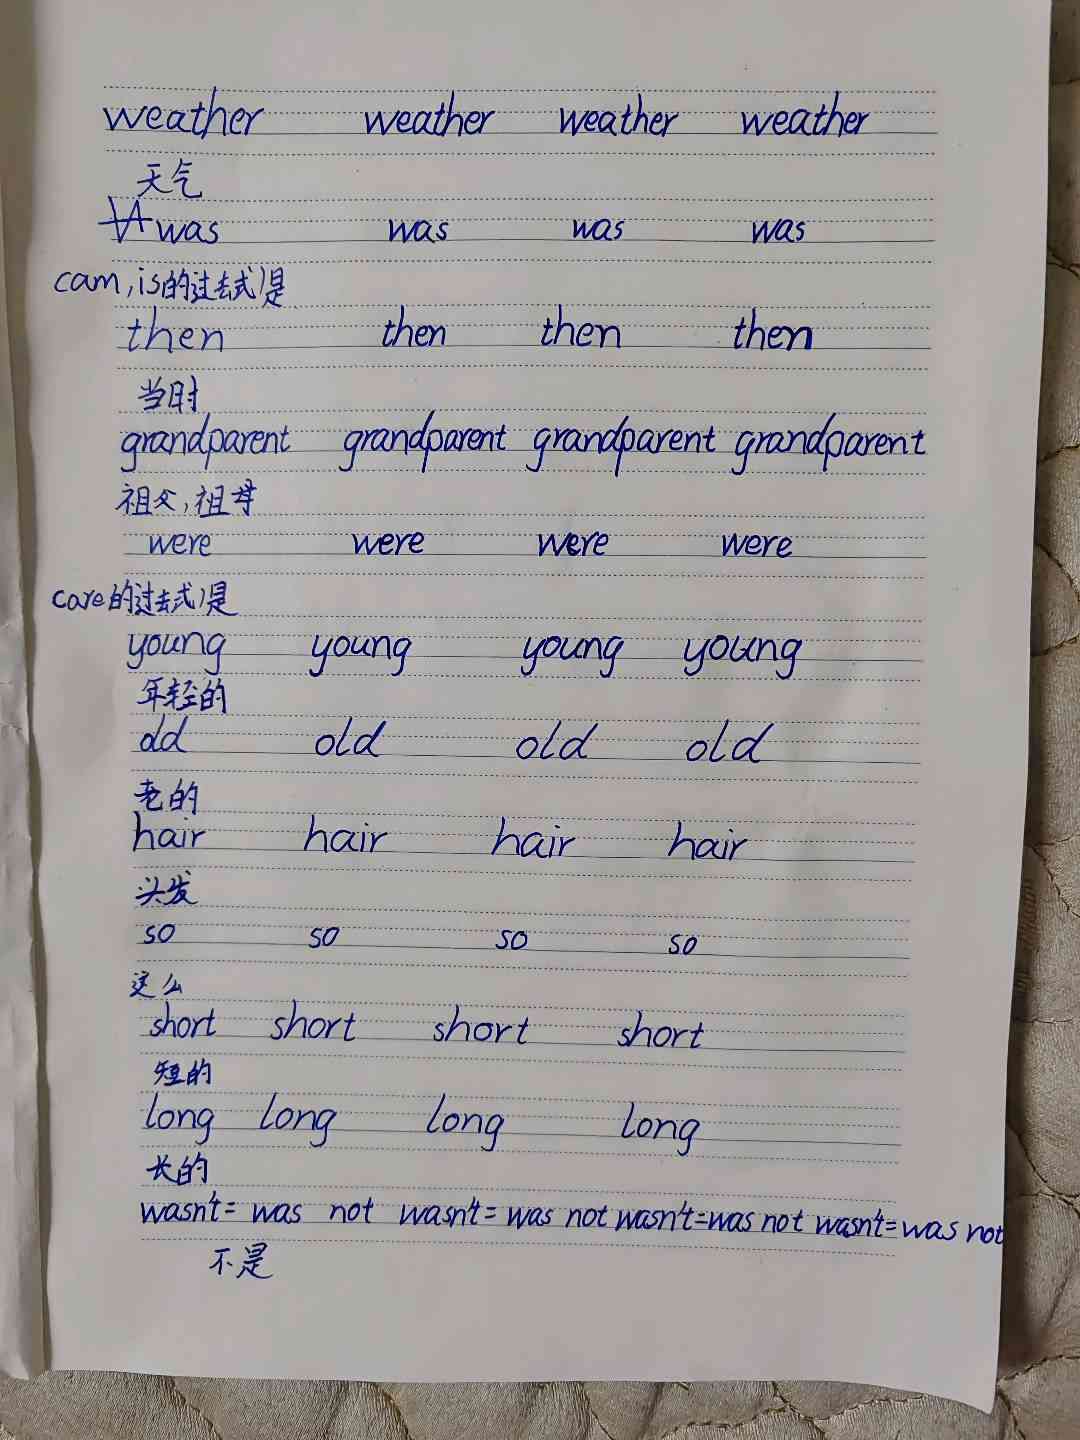 weather weather weather weather
天气
was was was was
(am,is的过去式)是
then then then then
当时
grandparent grandparent grandparent grandparent
祖父,祖母
were were were were
(are的过去式)是
young young young young
年轻的
old old old old
老的
hair hair hair hair
头发
so so so so
这么
short short short short
短的
long long long long
长的
wasn't= was not wasn't= was not wasn't=was not wasn't=was not
不是